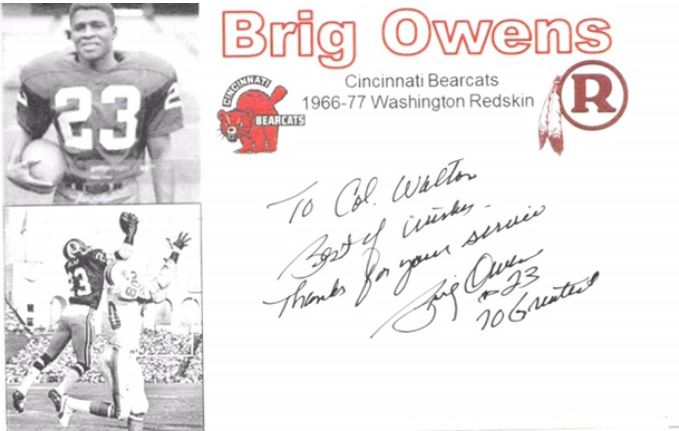 Brig Owens
Cincinnati Bearcats
1966-77 Washington Redskin
CINCINNATI
BEARCATS
R
23
23
To Col. Walton
Best of Wishes
Thanks for your service
Brig Owens
#23
70 Greatest